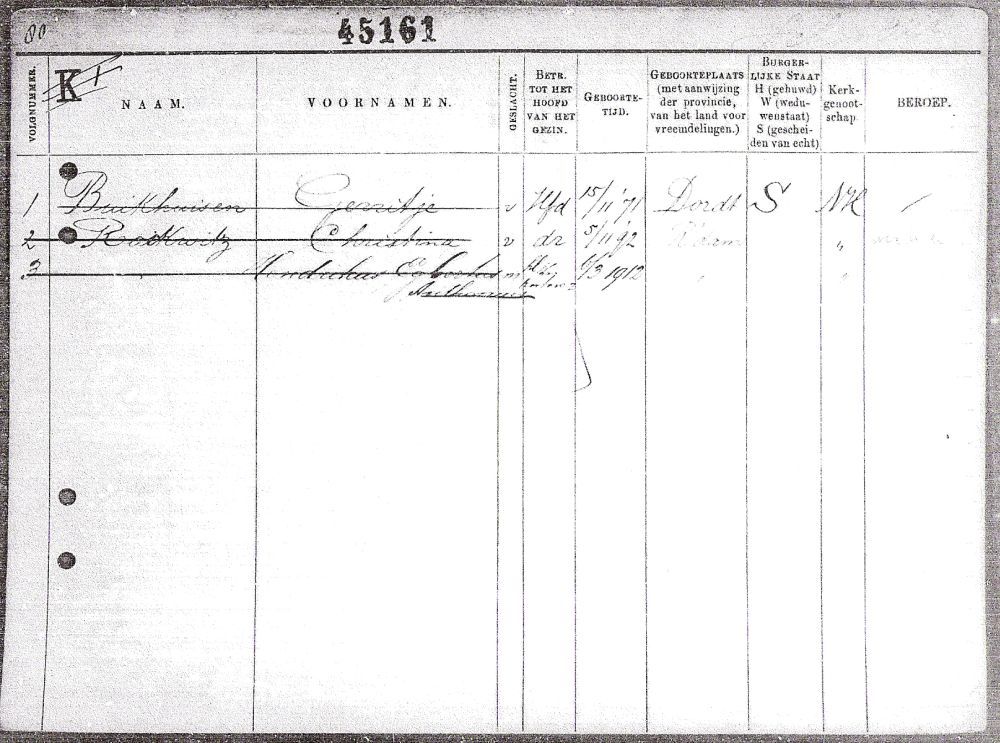 80
45161
K 1
VOLGNUMMER.
NAAM.
VOORNAMEN.
GESLACHT.
BETR.
TOT HET
HOOFD
VAN HET
GEZIN.
GEBOORTE-
TIJD.
GEBOORTEPLAATS
(met aanwijzing
der provincie,
van het land voor
vreemdelingen.)
BURGER-
LIJKE STAAT
H (gehuwd)
W (wedu-
wenstaat)
S (geschei-
den van echt)
Kerk-
genoot-
schap
BEROEP.
1 Buikhuisen Gerritje v Hfd 15/11 '71 Dordt S NH /
2 Rockwitz Christina v dr 5/11 92 R'dam "
3 " Hendrikus m 6/3 1912 " "